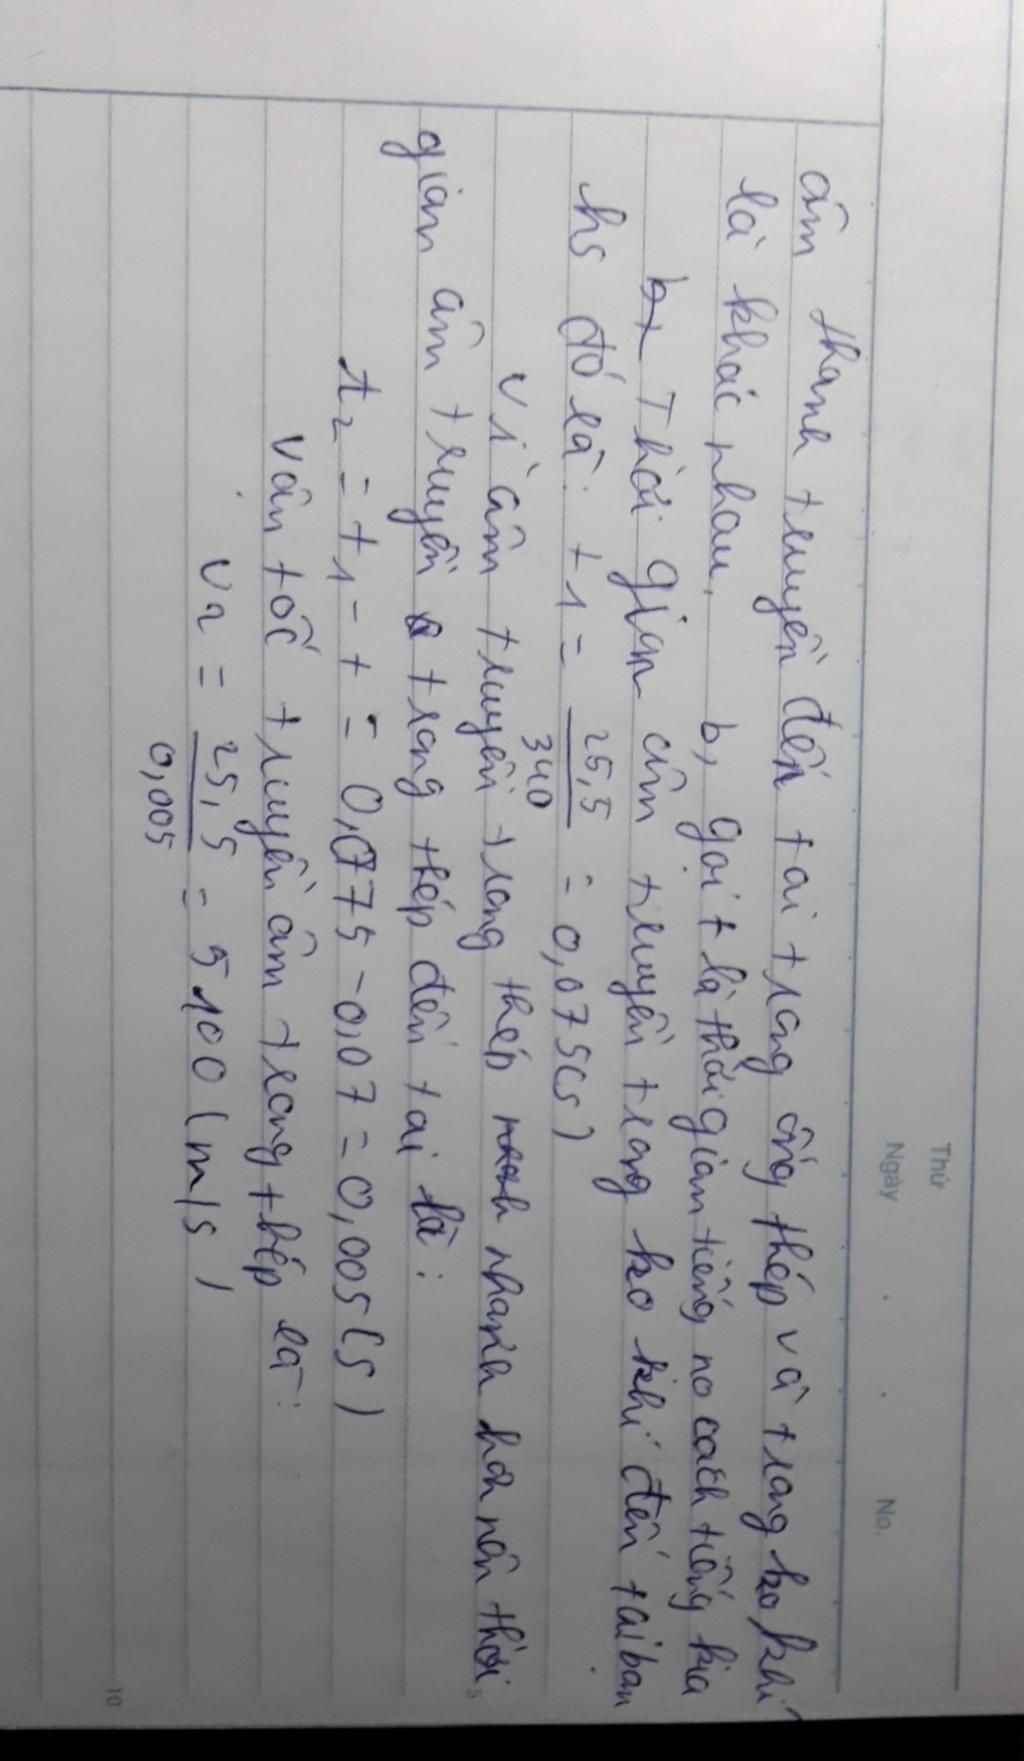 Thứ
Ngày
No.
âm thanh truyền đến tai trong ống thép và trong ko khí
là khác nhau. b, gọi t là thời gian tiếng nọ cách tiếng kia
Thời gian âm truyền trong ko khí đến tai bạn
hs đó là: t1 = 25,5 / 340 = 0,075(s)
Vì âm truyền trong thép nhanh hơn nên thời
gian âm truyền trong thép đến tai là:
t2 = t1 - t = 0,075 - 0,07 = 0,005(s)
Vân tốc truyền âm trong thép là:
v2 = 25,5 / 0,005 = 5100 (m/s)
5
10